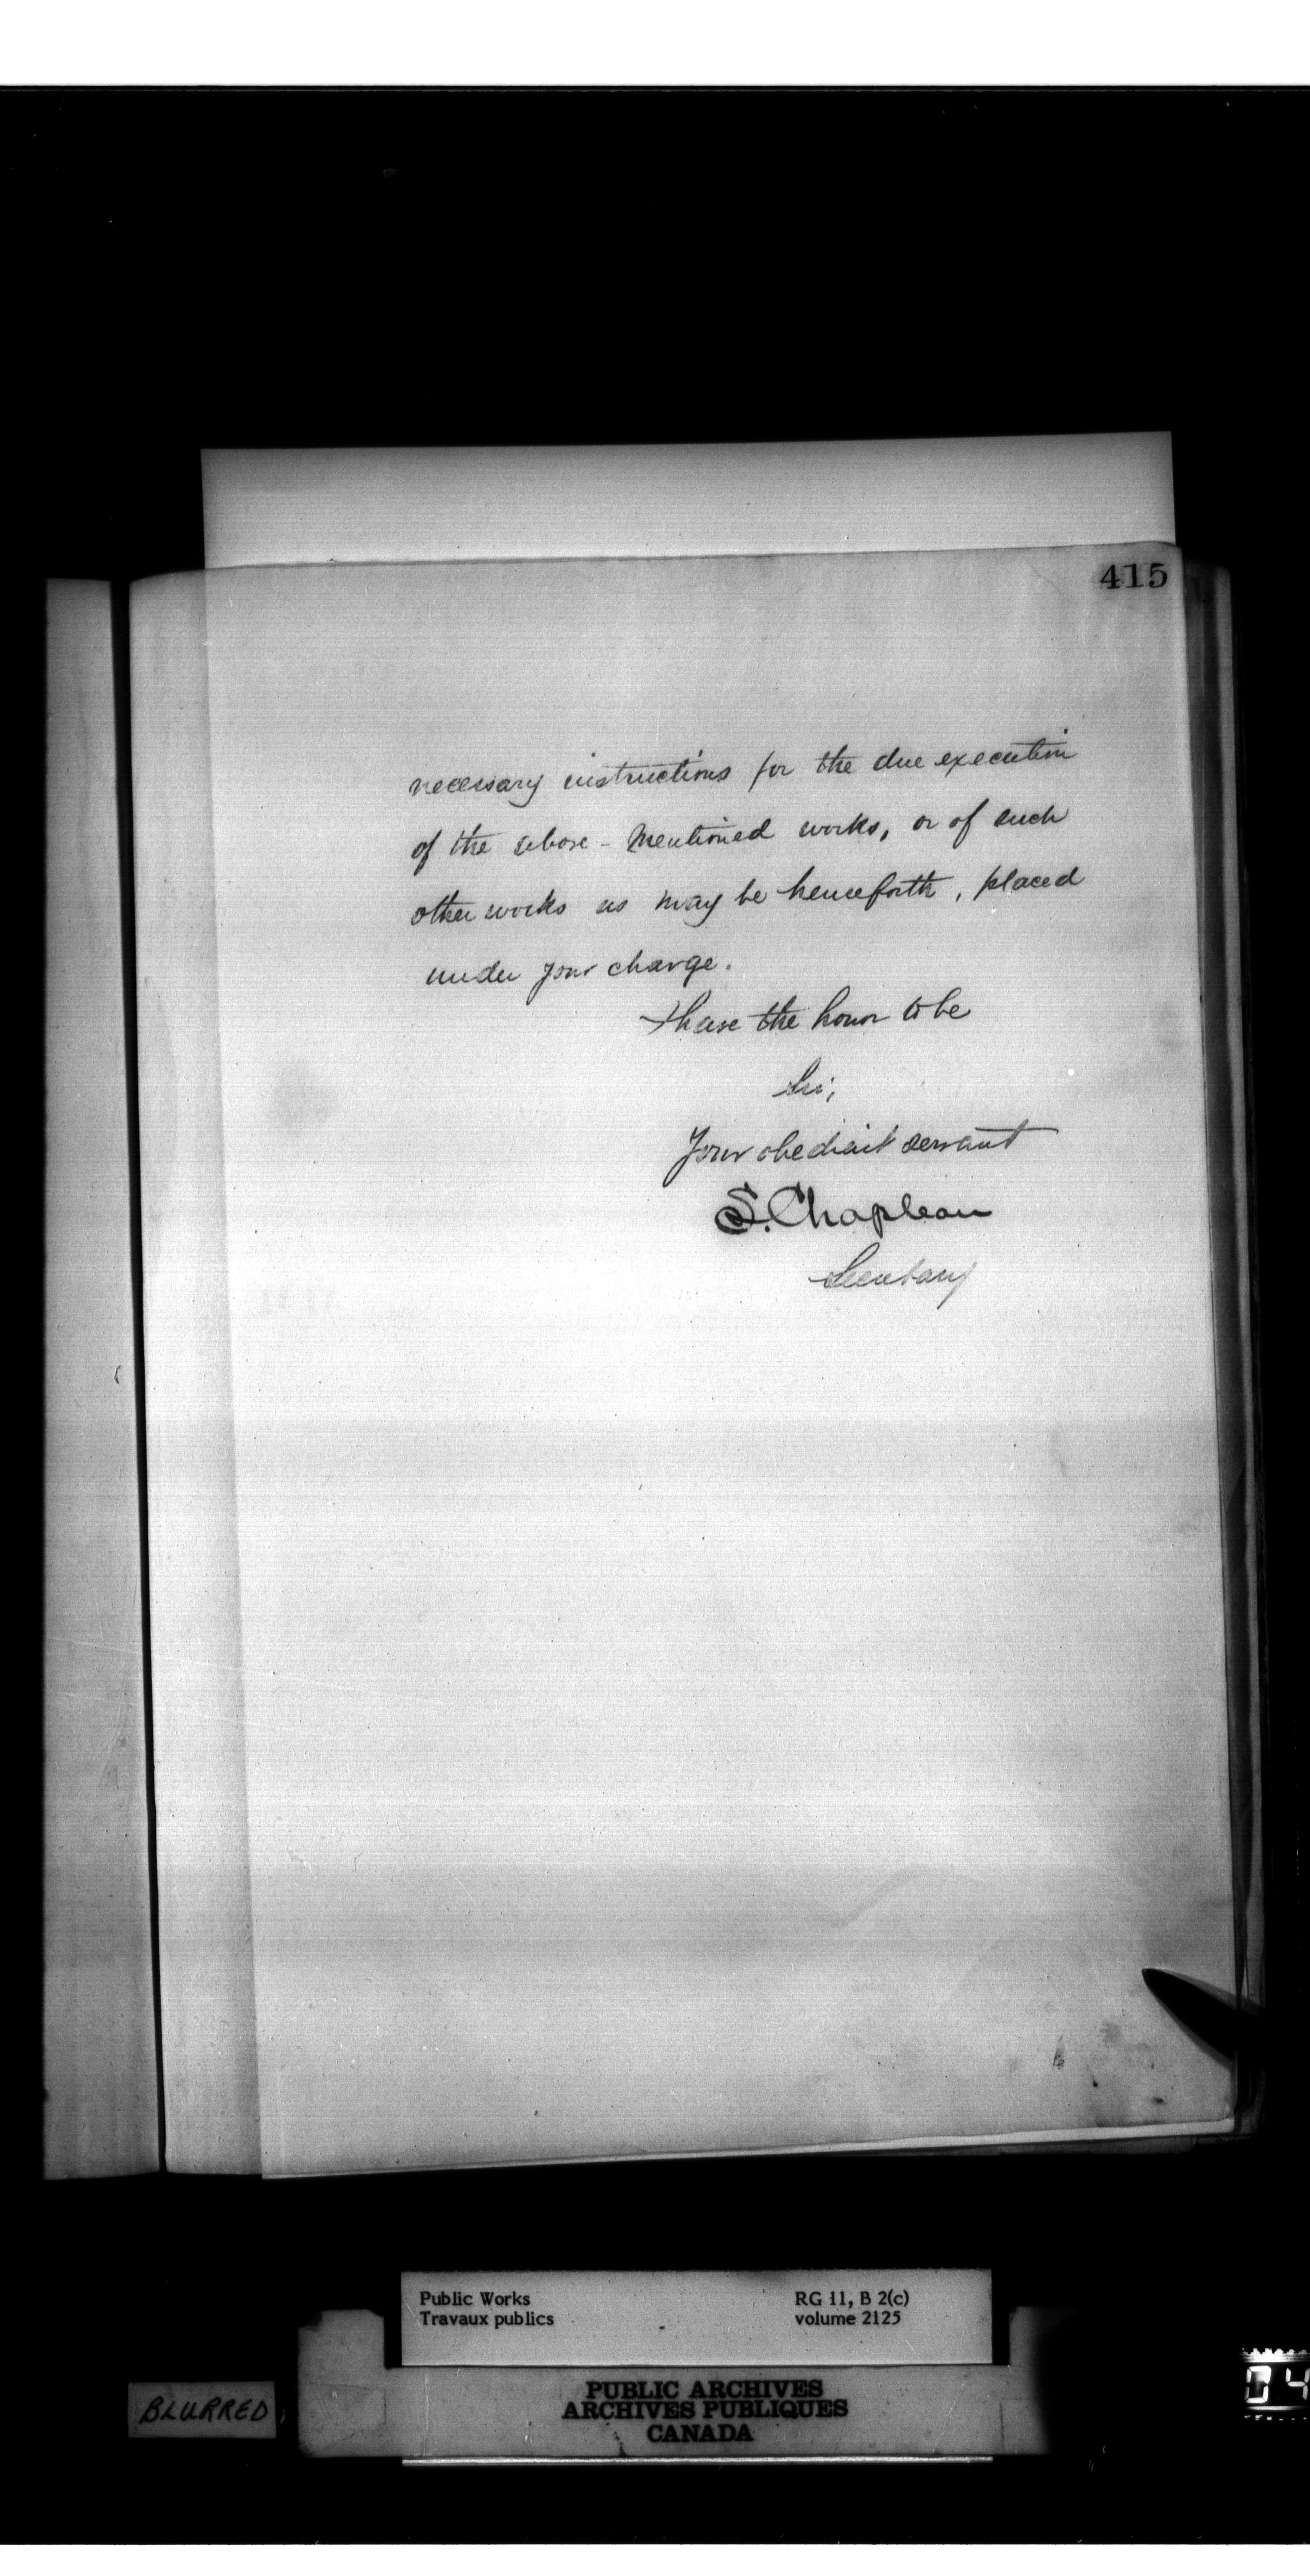 415
necessary instructions for the due execution
of the above - mentioned works, or of such
other works as may be henceforth, placed
under your charge.
I have the honor to be
Sir,
Your obedient servant
S. Chapleau
Secretary
Public Works
Travaux publics
RG 11, B 2(c)
volume 2125
PUBLIC ARCHIVES
ARCHIVES PUBLIQUES
CANADA
BLURRED
04